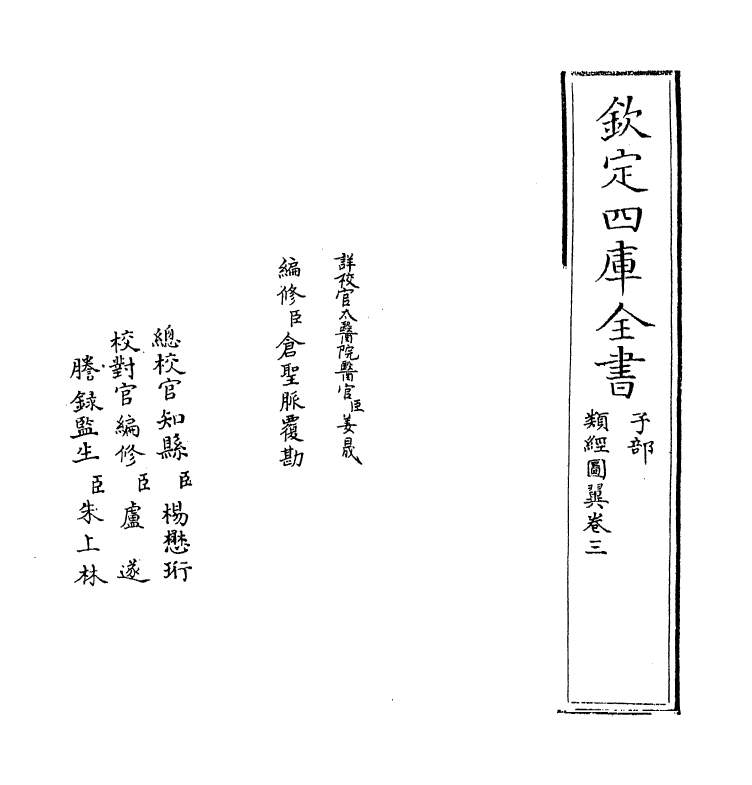 欽定四庫全書
子部
類經圖翼卷三
詳校官太醫院醫官臣姜晟
編修臣倉聖脈覆勘
總校官知縣臣楊懋珩
校對官編修臣盧遂
謄錄監生臣朱上林